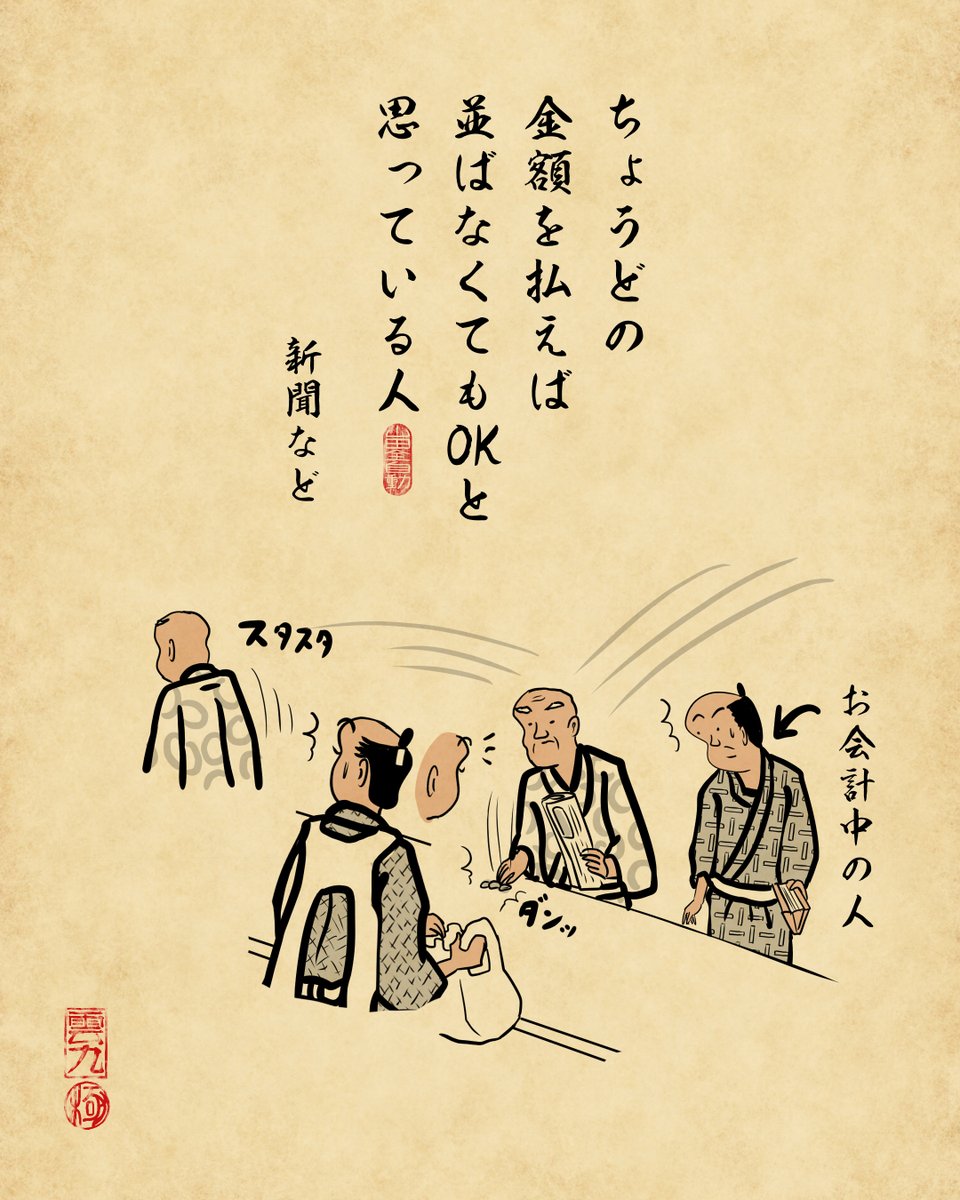 ちょうどの
金額を払えば
並ばなくてもOKと
思っている人
新聞など
スタスタ
ダンッ
お会計中の人